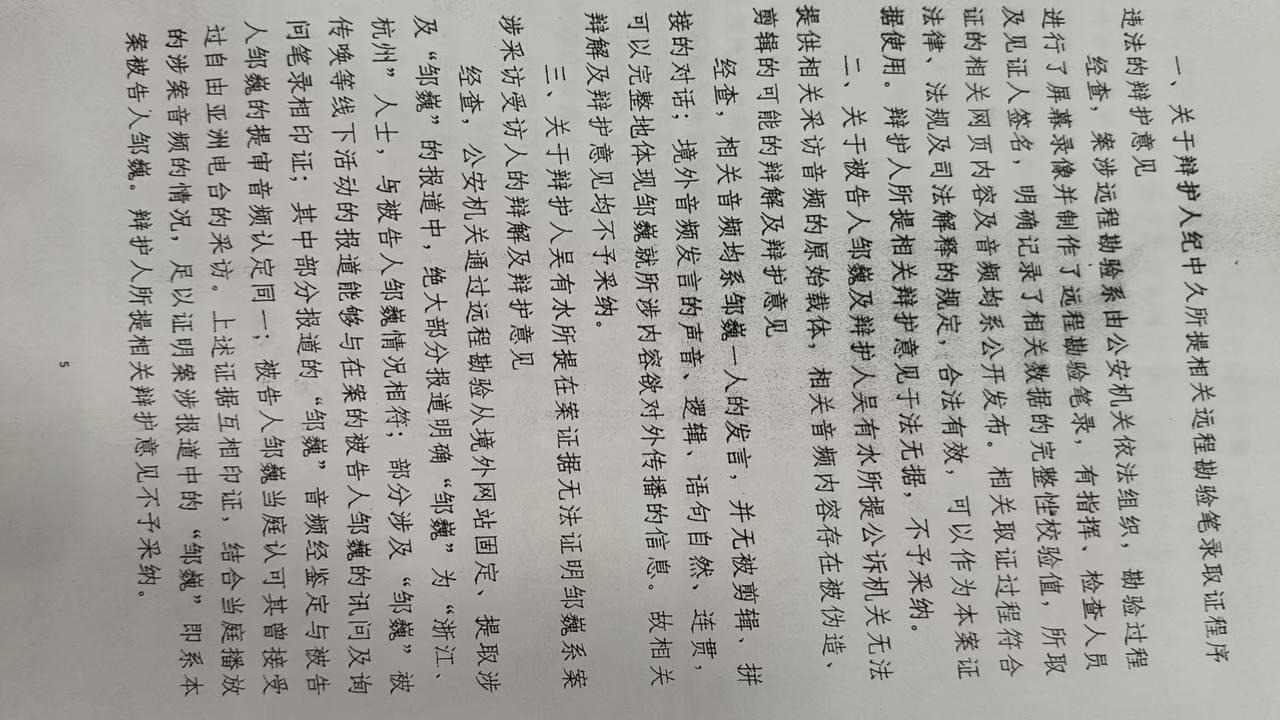 一、关于辩护人纪中久所提相关远程勘验笔录取证程序
违法的辩护意见
经查，案涉远程勘验系由公安机关依法组织，勘验过程
进行了屏幕录像并制作了远程勘验笔录，有指挥、检查人员
及见证人签名，明确记录了相关数据的完整性校验值，所取
证的相关网页内容及音频均系公开发布。相关取证过程符合
法律、法规及司法解释的规定，合法有效，可以作为本案证
据使用。辩护人所提相关辩护意见于法无据，不予采纳。
二、关于被告人邹巍及辩护人吴有水所提公诉机关无法
提供相关采访音频的原始载体，相关音频内容存在被伪造、
剪辑的可能的辩解及辩护意见
经查，相关音频均系邹巍一人的发言，并无被剪辑、拼
接的对话；境外音频发言的声音、逻辑、语句自然、连贯，
可以完整地体现邹巍就所涉内容欲对外传播的信息。故相关
辩解及辩护意见均不予采纳。
三、关于辩护人吴有水所提在案证据无法证明邹巍系案
涉采访受访人的辩解及辩护意见
经查，公安机关通过远程勘验从境外网站固定、提取涉
及“邹巍”的报道中，绝大部分报道明确“邹巍”为“浙江、
杭州”人士，与被告人邹巍情况相符；部分涉及“邹巍”被
传唤等线下活动的报道能够与在案的被告人邹巍的讯问及询
问笔录相印证；其中部分报道的“邹巍”音频经鉴定与被告
人邹巍的提审音频认定同一；被告人邹巍当庭认可其曾接受
过自由亚洲电台的采访。上述证据互相印证，结合当庭播放
的涉案音频的情况，足以证明案涉报道中的“邹巍”即系本
案被告人邹巍。辩护人所提相关辩护意见不予采纳。
5